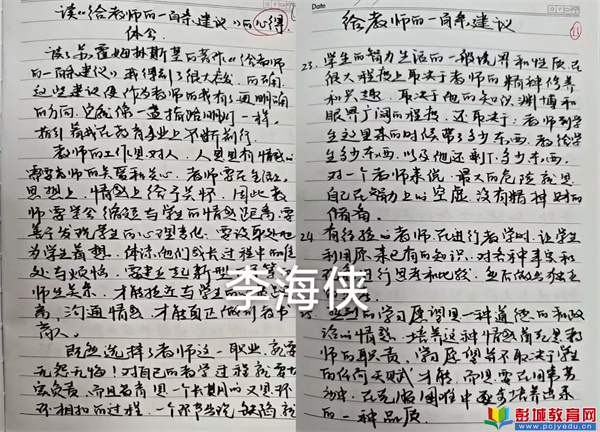 读《给教师的一百条建议》的心得
体会
读了苏霍姆林斯基的著作《给教师
的一百条建议》我得到了很大启发,的确,
这些建议使作为教师的我有了更明确
的方向,它就像一盏指路明灯一样,
指引着我在教育事业上不断前行。
教师的工作是对人,人是有情感的
需要教师的关爱和关心。老师要在生活上,
思想上,情感上给予关怀。因此教
师要学会缩短与学生的情感距离,要
善于发现学生的心理变化,要设身处地
为学生着想,体谅他们成长过程中的
处与烦恼,需建立起新型
师生关系,才能拉近与学生的
离,沟通情感,才能真正做到教书
育人。
既然选择了教师这一职业,就要
无怨无悔!对自己的教学过程就要切
实负责,而且教育是一个长期的又是环
环相扣的过程,一个环节出现缺陷就
Date
给教师的一百条建议
23. 学生的智力生活的一般境界和性质,在
很大程度上取决于老师的精神修养
和兴趣,取决于他的知识渊博和
眼界广阔的程度,还取决于:老师到学
生这里来的时候带了多少东西,教给学
生多少东西,以及他还剩下多少东西。
对一个老师来说,最大的危险就是
自己在智力上的空虚,没有精神财富的
储备。
24. 有经验的老师,在进行教学时,让学生
利用原来已有的知识,对各种事实和
进行思考和比较,然后做出独立
学习愿望是一种道德的和政
治的情感,培养这种情感首先是教
师的职责,学习愿望并不取决于学生
的任何天赋才能,而是要在日常劳
动中,在克服困难中逐步培养出来
的一种品质。
李海侠
彭城教育网
www.pcjyedu.cn